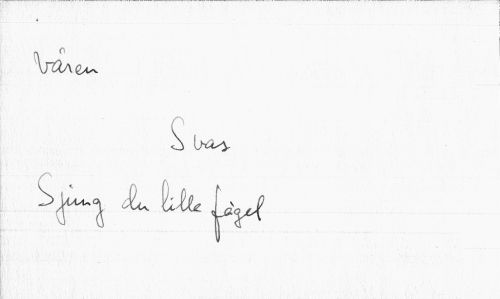 Våren
Svas
Sjung du lille fågel